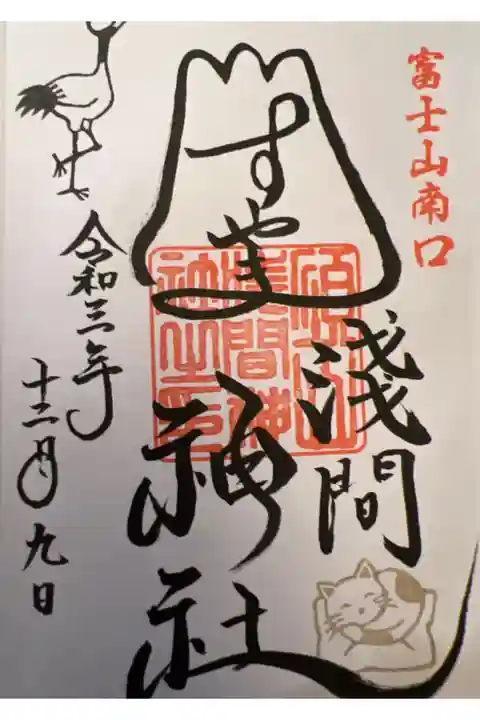 富士山南口
すやま
浅間
神社
須山浅間神社之印
令和三年
十二月九日